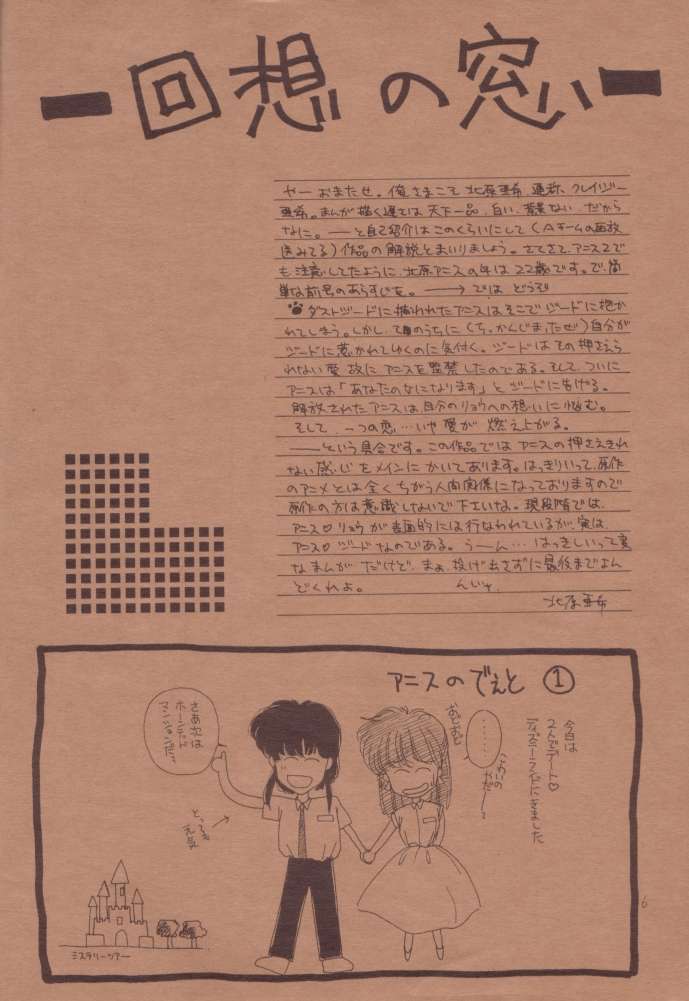 ー回想の窓ー
やー おまたせ。俺さまこそ 北原亜希 通称、クレイジー
亜希。まんが描く速さは天下一品、白い、背景ない、だから
なに。――と自己紹介はこのくらいにして(Aチームの再放
送みてる)作品の解説とまいりましょう。さてさて、アニス2で
も注意してたように、北原アニスの年は22歳です。で、簡
単な前号のあらすじを。――→ では どうぞ
ダストジードに捕われたアニスはそこでジードに抱か
れてしまう。しかし、そのうちに(ち、かんじまったぜ)自分が
ジードに惹かれてゆくのに気付く。ジードはその押さえら
れない愛故に、アニスを監禁したのである。そして、ついに
アニスは「あなたのなにになります」とジードに告げる。
解放されたアニスは、自分のリョウへの想いに悩む。
そして、一つの恋…いや愛が 燃え上がる。
――という具合です。この作品では アニスの押さえきれ
ない感じをメインにかいてあります。はっきりいって、原作
のアニメとは全くちがう人間関係になっておりますので
原作の方は意識しないで下さいな。現段階では、
アニス♡リョウが表面的には行なわれているが、実は、
アニス♡ジードなのである。うーん… はっきしいって変
なまんが だけど、まぁ、投げ出さずに最後までよん
どくれよ。
北原亜希
アニスのでぇと ①
今日は
2人でデート♡
ディズニーランドにきました
おどおど
………
こーゆーの
やだー
さあ次は
ホーンテッド
マンションだっ
とっても
元気
ミステリーツアー
6